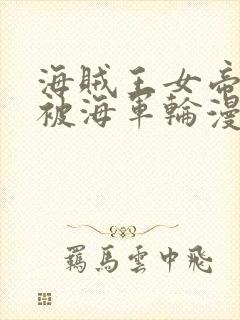 海賊王女帝
被海軍輪漫
羈馬雲中飛